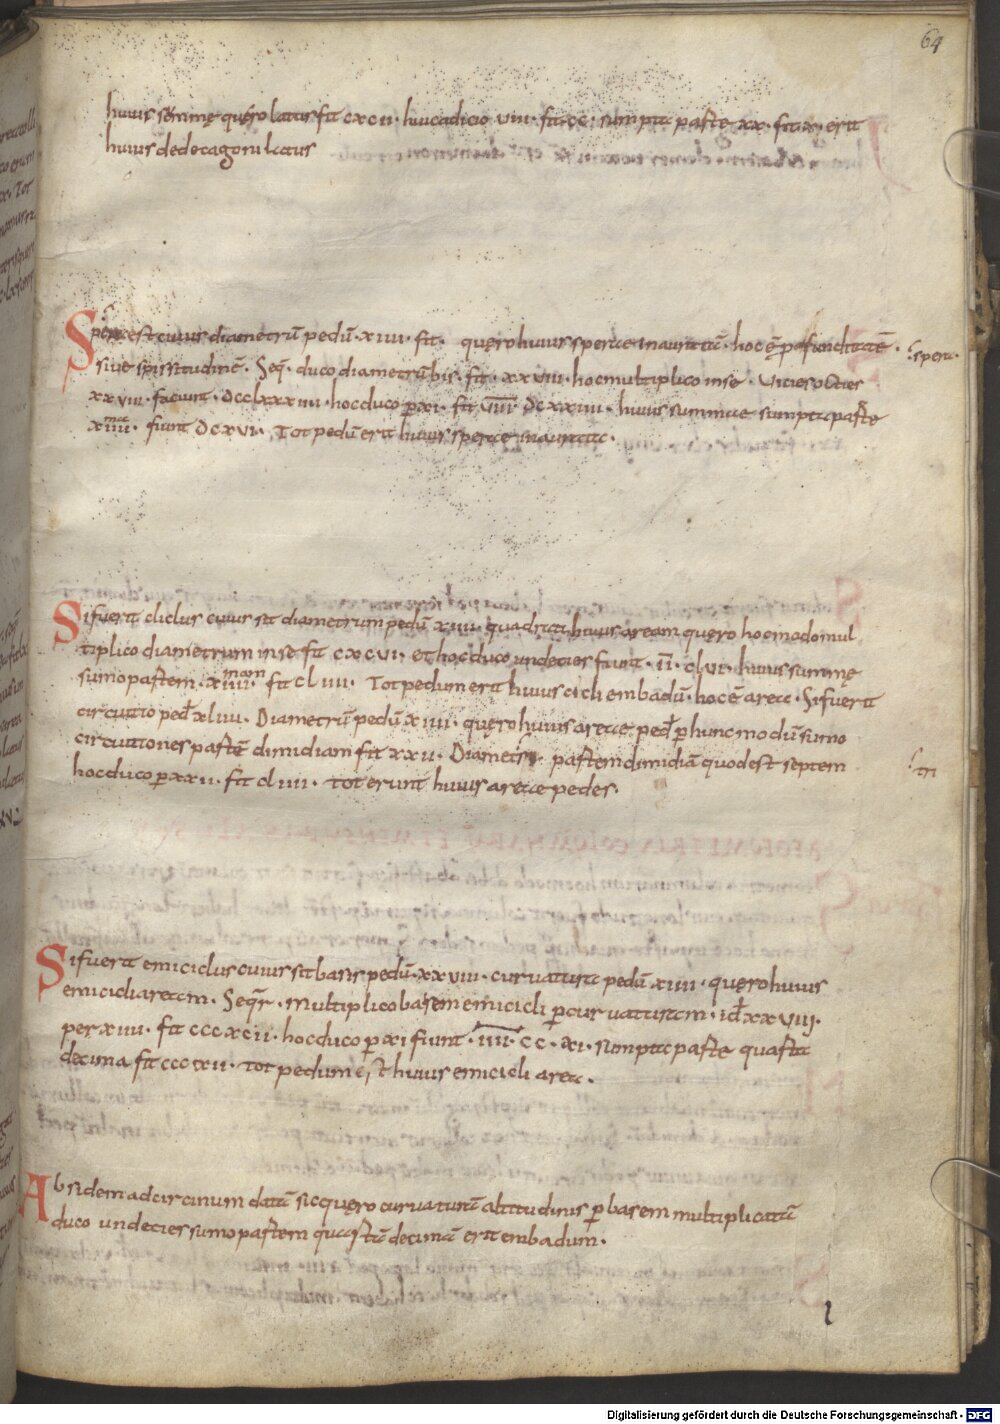 64
huius sūmmę quęro latus fit cxcii· huic adicio viii· fit cc· sumpta parte xx· fit x· erit
huius dedecagoni latus
Spera est cuius diametrū pedū·xiiii· fit· quęro huius sperae inauratā· hoc ē profunditatē· spera·
sive spissitudinē· Seq̄· duco diametrū bis· fit·xxviii· hoc multiplico in se· vicies octies
xxviii· faciunt· dcclxxxiiii· hoc duco p xi· fit viii· dcxxiiii· huius summae sumpta parte
xiiii· fiunt dcxvi· Tot pedū erit huius sperae inaurata·
Si fuerit cliclus cuius sit diametrum pedū xiiii· quadrati huius aream quero hoc modo mul
tiplico diametrum in se fit cxcvi· et hoc duco undecies fiunt·ii· clvi· huius summę
sumo partem·xiiii mam fit cliiii· Tot pedum erit huius cicli embadū· hoc ē area· Si fuerit
circuitio ped xliiii· Diametrū pedū xiiii· quęro huius areae ped p hunc modū sumo
circuitiones partē dimidiam fit xxii· Diametri partem dimidiā quod est septem tri
hoc duco p xxii· fit cliiii· tot erunt huius areae pedes·
Si fuerit emiciclus cuius sit basis pedū·xxviii· curvatura pedū xiiii· quęro huius
emicicli aream· Seqr· multiplico basem emicicli p curvaturam·id xxviii·
per xiiii· fit cccxcii· hoc duco p xi fiunt·iiii·cc·xi· sumpta parte quarta
decima fit cccxii· tot pedum est huius emicicli area·
Absidem ad circinum datā sic quęro curvaturā altitudinis p basem multiplicatā
duco undecies sumo partem quartā decimā erit embadum·
Digitalisierung gefördert durch die Deutsche Forschungsgemeinschaft - DFG